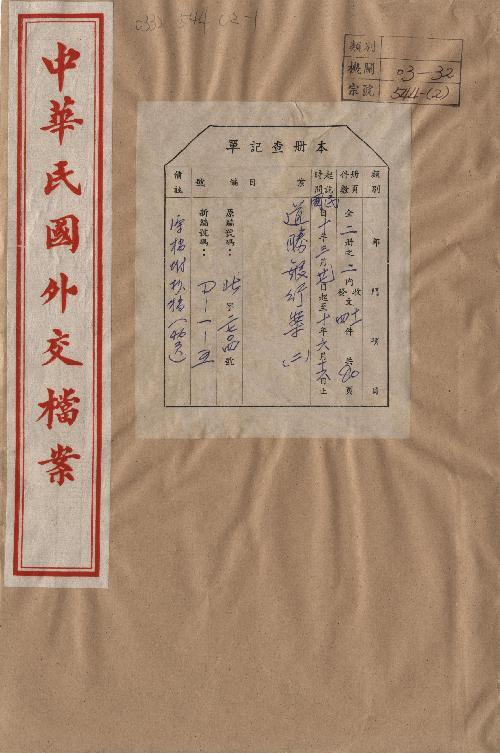 0332 544 (2-1
類別
機關 03-32
宗號 544-(2)
中華民國外交檔案
本冊查記單
類別 部門 項目
冊頁件數 全二冊之二內收發文四十二件 共80頁
起訖時間 民國十年三月 日起至十年六月 日止
案目 道勝銀行案(二)
編號 原編號碼: 此字 號
新編號碼: D-1-
備註